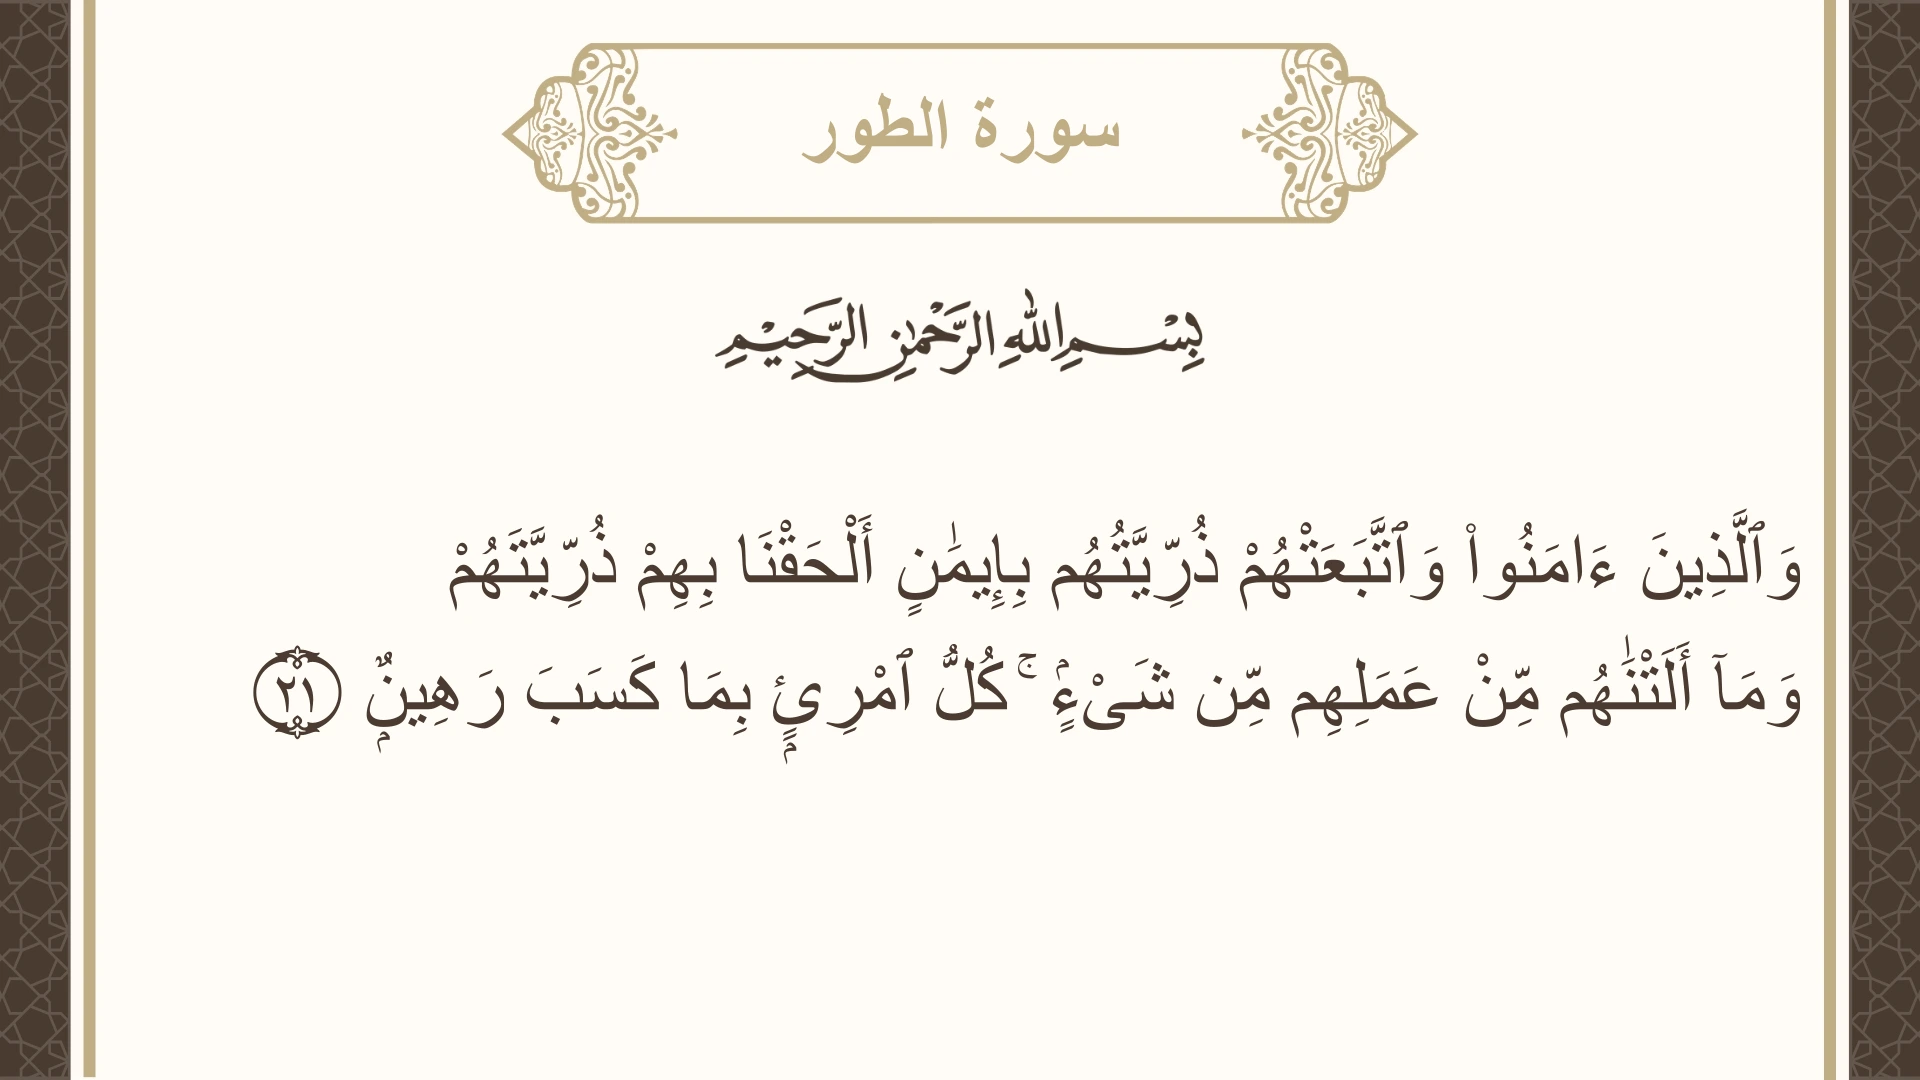 سورة الطور
بِسْمِ اللهِ الرَّحْمٰنِ الرَّحِيْمِ
وَٱلَّذِينَ ءَامَنُوا۟ وَٱتَّبَعَتْهُمْ ذُرِّيَّتُهُم بِإِيمَٰنٍ أَلْحَقْنَا بِهِمْ ذُرِّيَّتَهُمْ
وَمَآ أَلَتْنَٰهُم مِّنْ عَمَلِهِم مِّن شَىْءٍۢ ۚ كُلُّ ٱمْرِئٍۭ بِمَا كَسَبَ رَهِينٌۭ ٢١